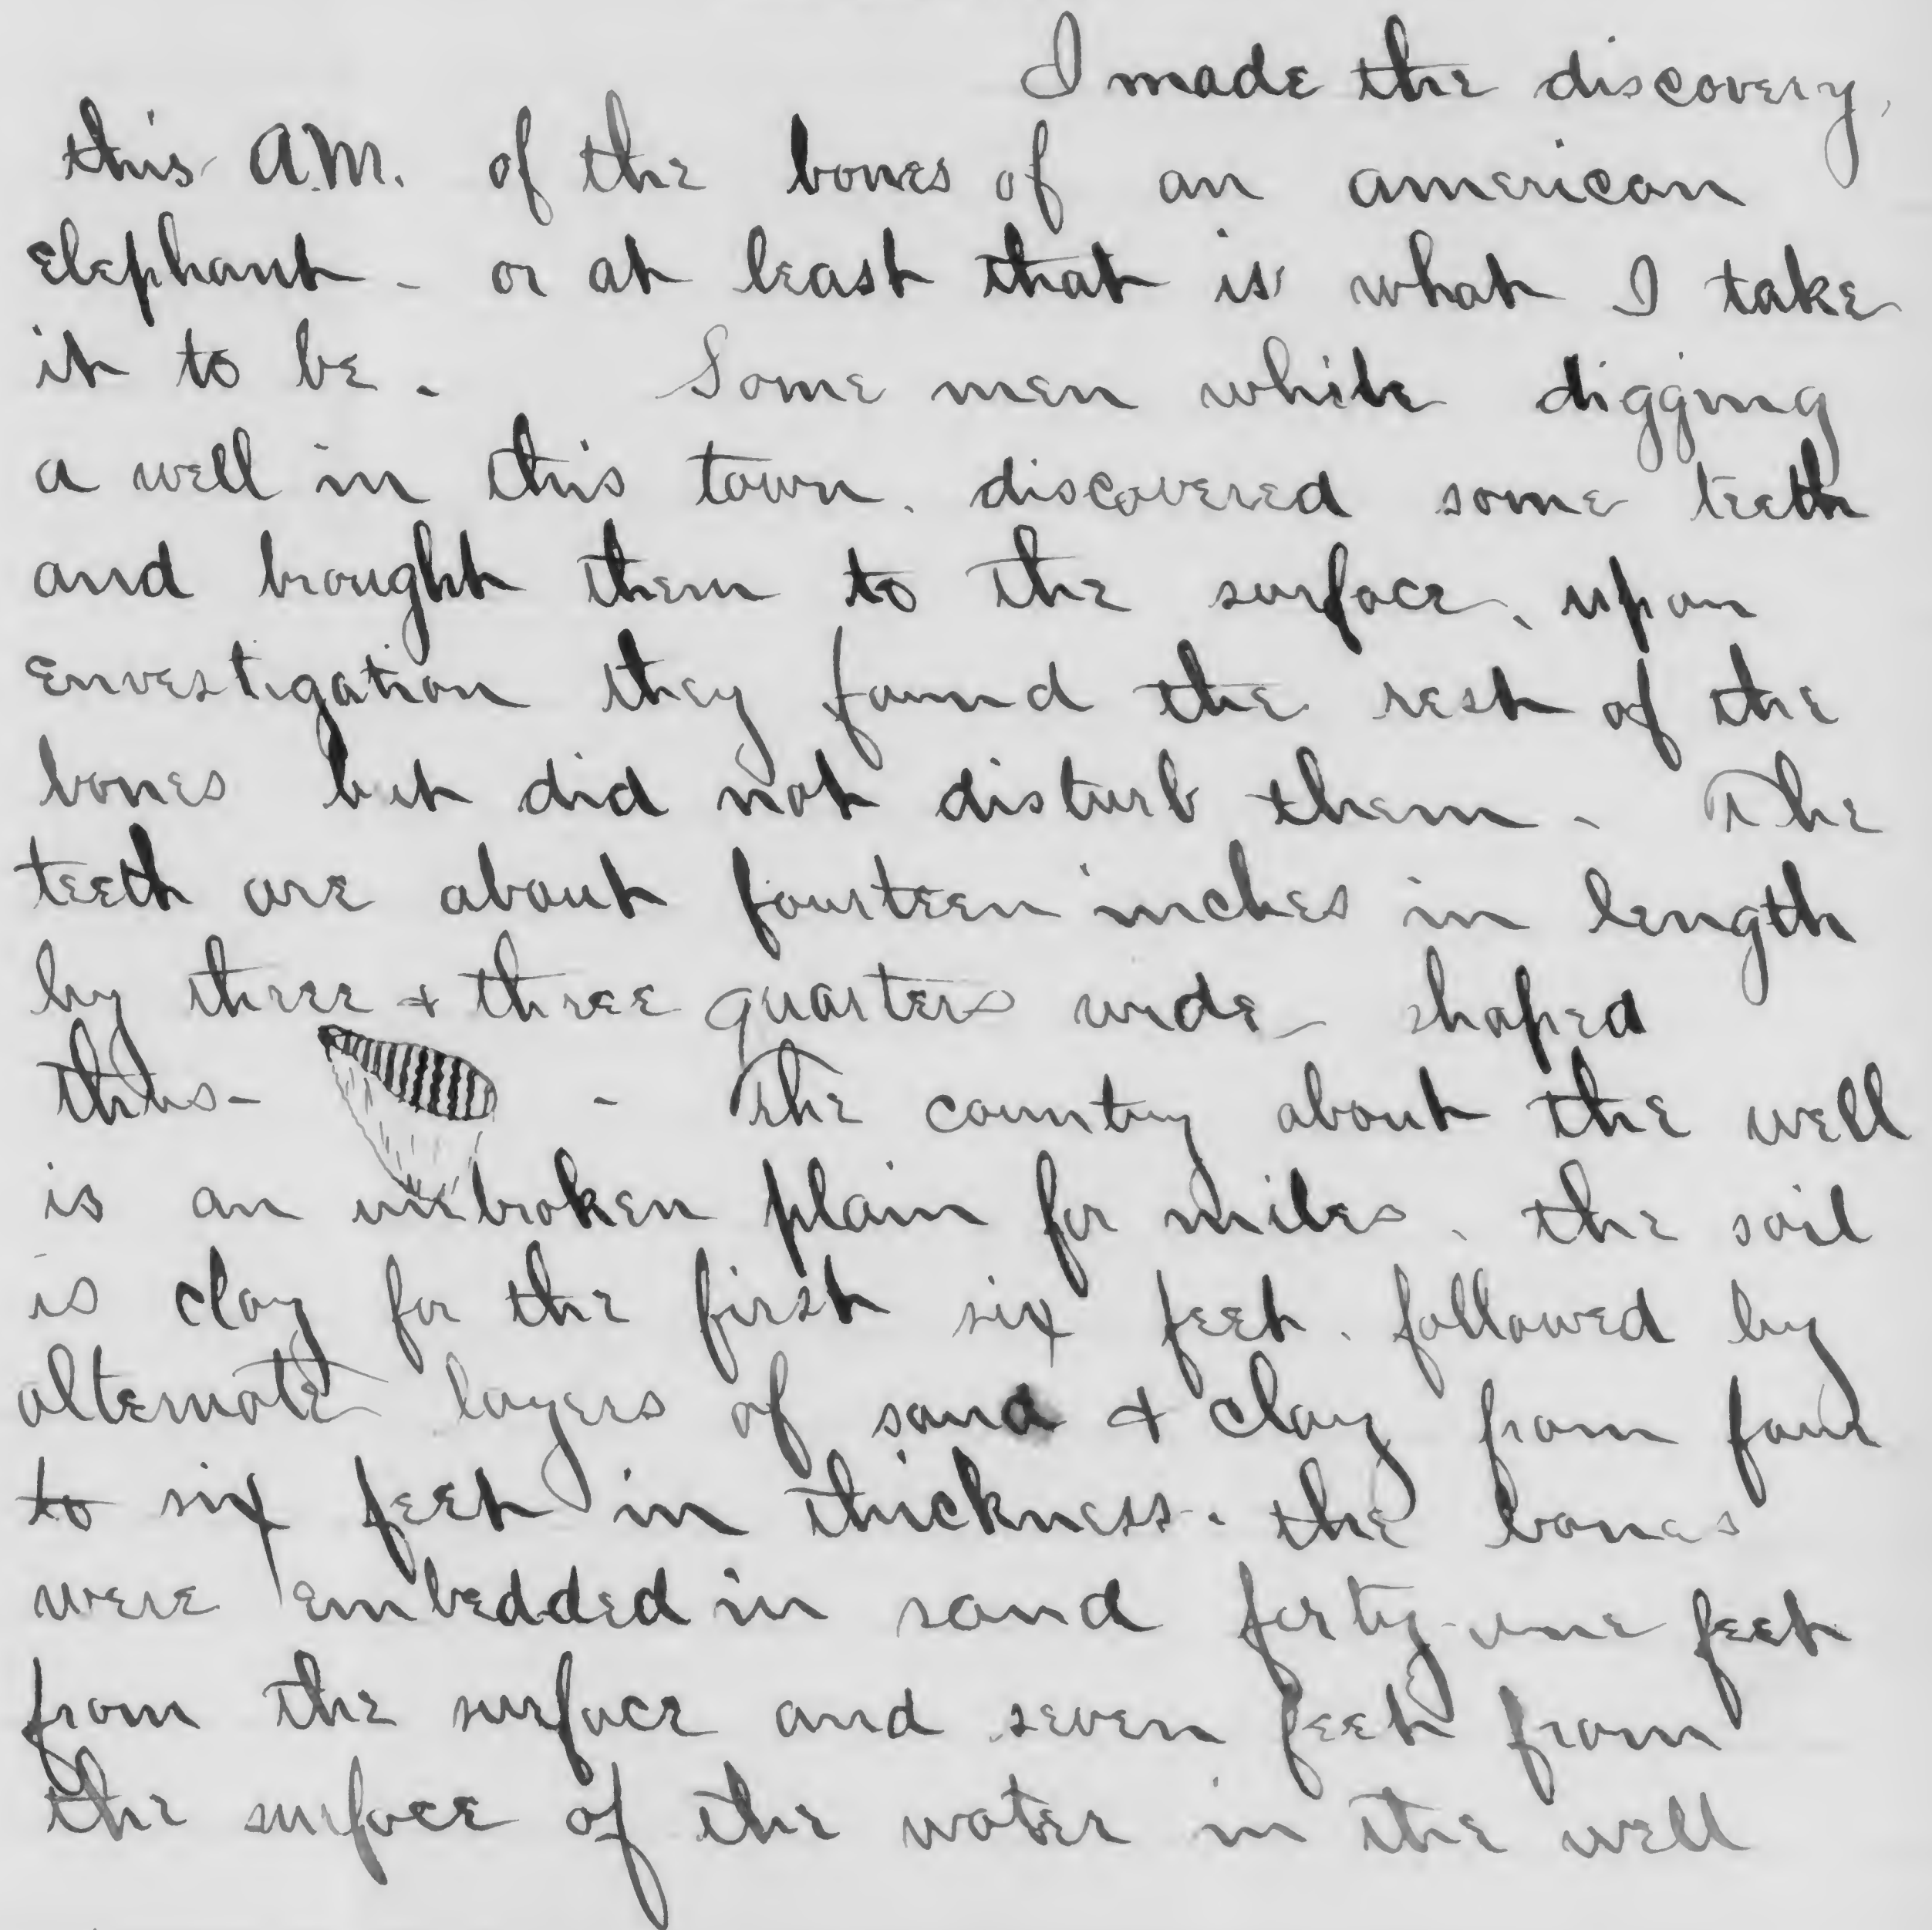 I made the discovery,
this A.M. of the bones of an american
Elephant - or at least that is what I take
it to be - Some men while digging
a well in this town, discovered some teeth
and brought them to the surface, upon
envestigation they found the rest of the
bones but did not disturb them - The
teeth are about fourteen inches in length
by three + three quarters wide - shaped
thus - - The country about the well
is an unbroken plain for miles, the soil
is clay for the first six feet, followed by
alternate layers of sand + clay from four
to six feet in thickness. the bones
were embedded in sand forty-one feet
from the surface and seven feet from
the surface of the water in the well